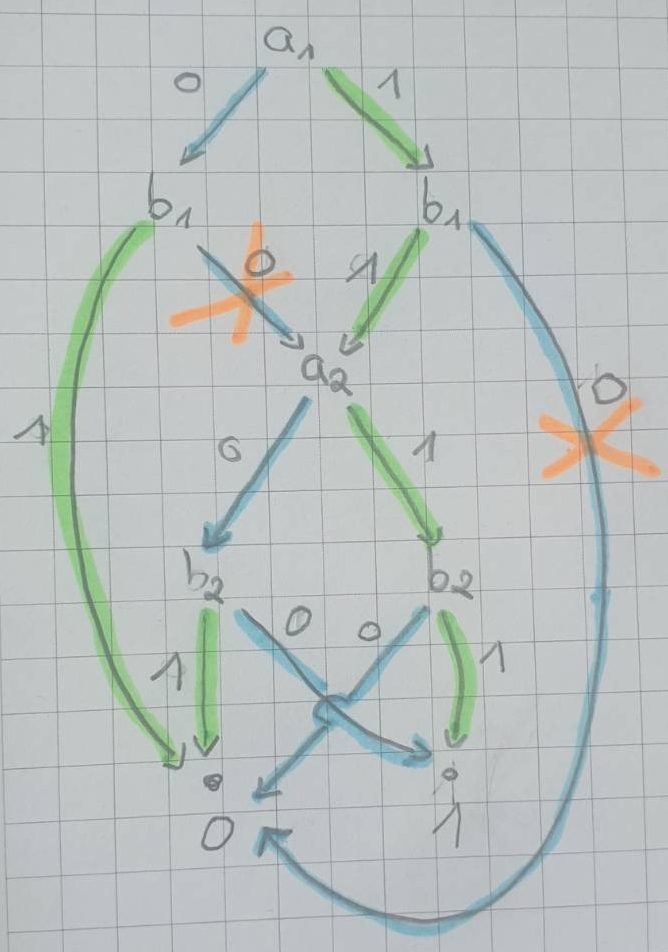 a₁
0 1
b₁ b₁
0 1
0
a₂
1
0 1
b₂ b₂
0 0
1 1
0 1